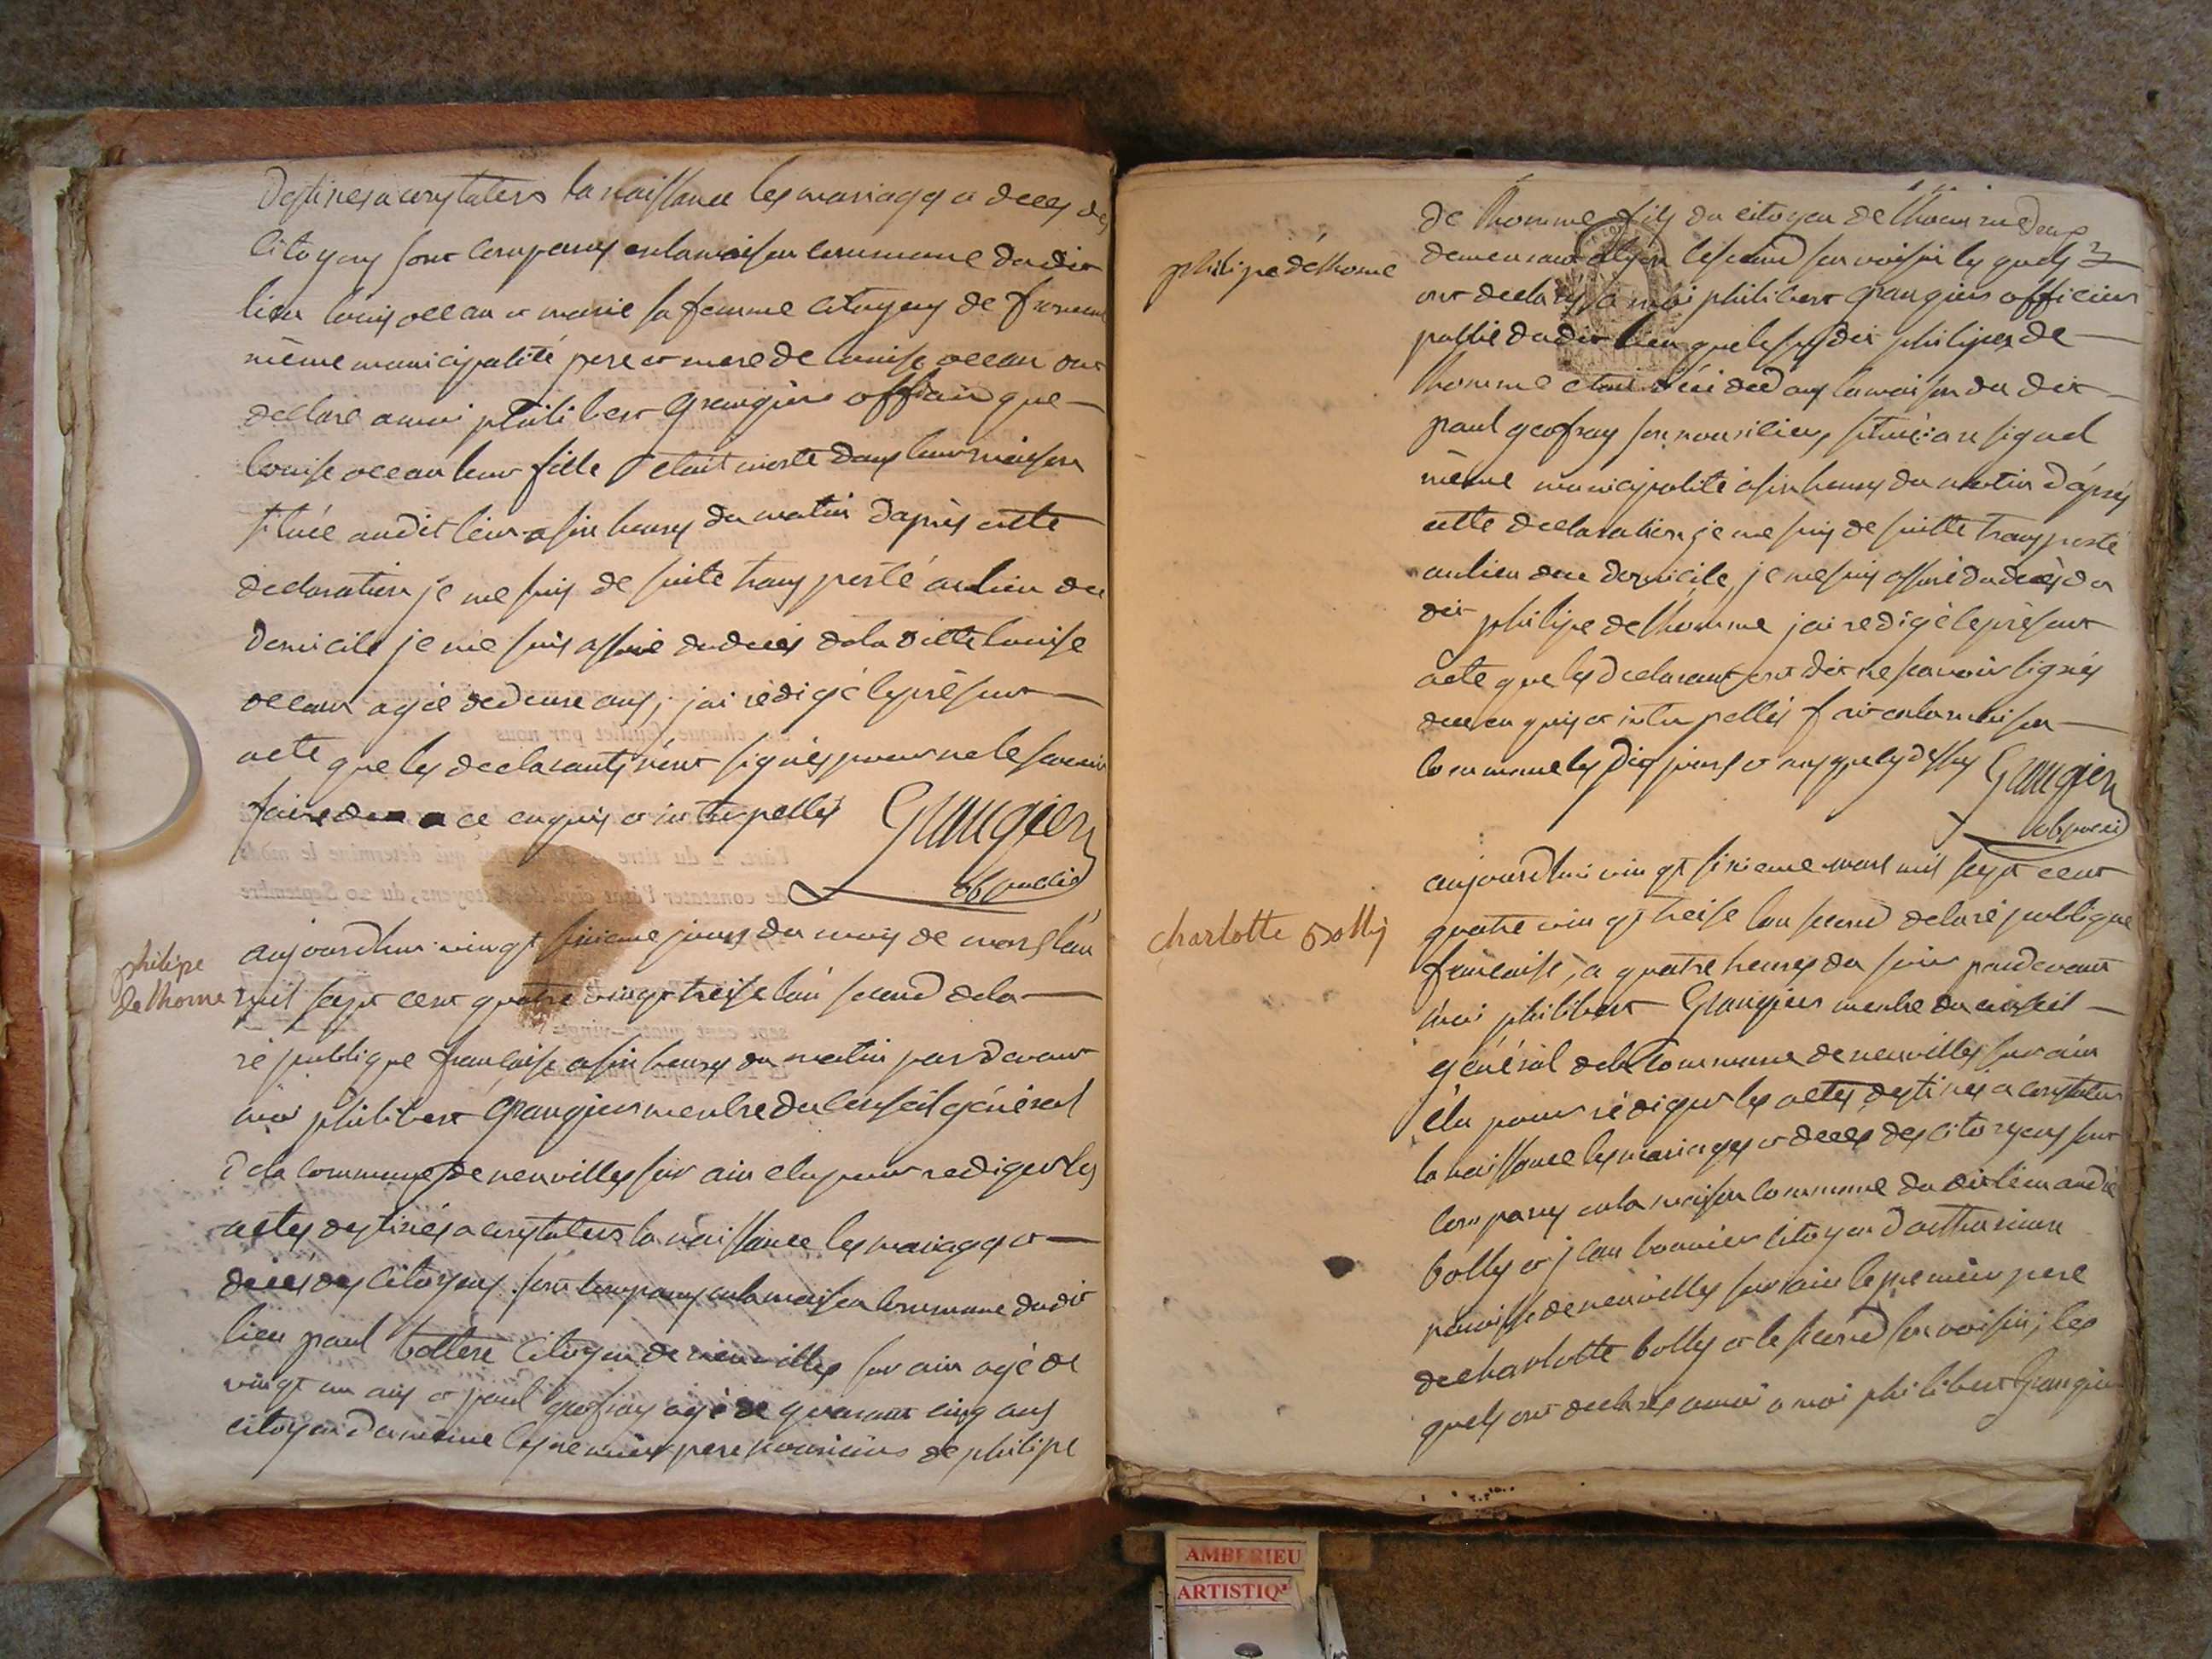 destinés a constaters la naissance les mariages et deces des
citoyens sont comparus en la maison commune dudit
lieu louis occau et marie sa femme citoyens de
même municipalité pere et mere de louise occau ont
declaré a moi philibert Grangier officier que
louise occau leur fille était morte dans leur maison
située audit lieu a six heures du matin d'après cette
declaration je me suis de suite transporté au lieu du
domicile je me suis assuré du decès de la ditte louise
occau agée de deux ans, j'ai rédigé le présent
acte que les declarants n'ont signés pour ne le scavoir
faire de ce enquis et interpellés Grangier
ob public
philipe
delhome
aujourdhui vingt sixieme jours du mois de mars l'an
mil sept cent quatre vingt treise l'an second de la
république francaise a six heures du matin pardevant
moi philibert Grangier menbre du conseil général
de la commune de neuville sur ain elu pour rediger les
actes destinés a constaters la naissance les mariages et
décès des citoyens sont comparus en la maison commune dudit
lieu paul citoyen de neuville sur ain agé de
vingt un ans et paul geofray agé de quarante cinq ans
citoyen du même le premier pere nouricier de philipe
philipe délhomé
de lhomme fils du citoyen de lhomme
demeurant a lyon le second son voisin les quels
ont declarés a moi philibert Grangier officier
public dudit lieu que le susdit philipe de
lhomme etoit décidé dans la maison du dit
paul geofray son nouricier, située a resignel
même municipalité a six heures du matin d'après
cette declaration je me suis de suitte transporté
au lieu du domicile, je me suis assuré du decès du
dit philipe delhomme jai redigé le présent
acte que les declarant ont dit ne scavoir signés
de ce enquis et interpellés fait en la maison
commune les dit jours et an que dessus Grangier
ob public
charlotte Bolly
aujourdhui vingt sixieme mars mil sept cent
quatre vingt treise l'an second de la république
francaise, a quatre heures du soir pardevant
moi philibert Grangier menbre du conseil
général de la Commune de neuville sur ain
élu pour rédiger les actes destinés a constater
la naissance les mariages et deces des citoyens sont
comparus en la maison commune du dit lieu andré
bolly et jean bouvier citoyen
paroisse de neuville sur ain le premier pere
de charlotte bolly et le second son voisin, les
quels ont declarés a moi a moi philibert Grangier
AMBERIEU
ARTISTIQ